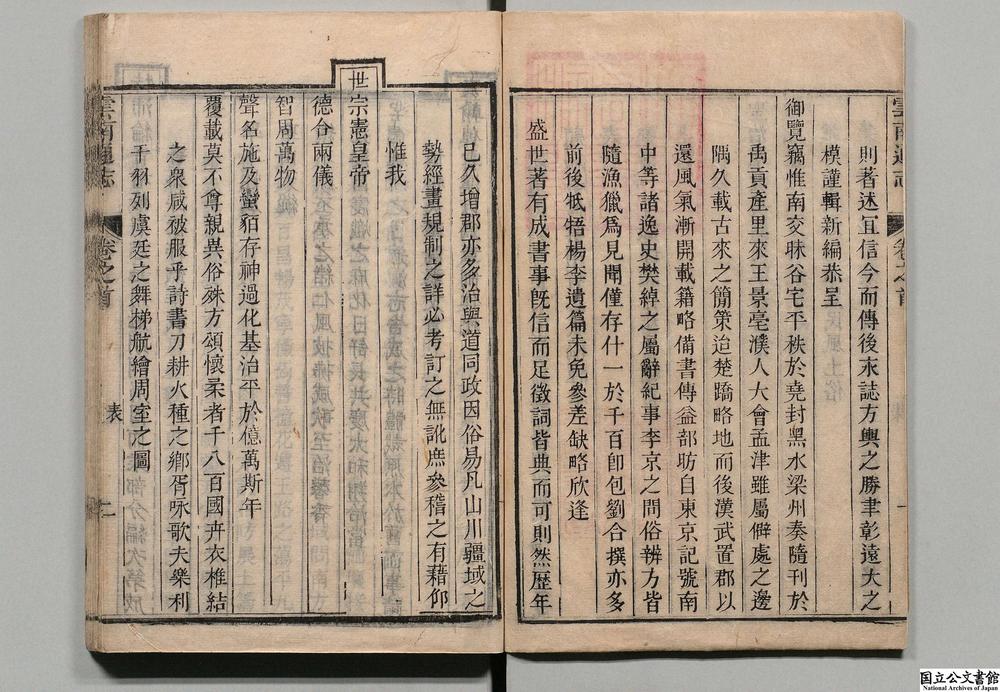 則著述宜信今而傳後來誌方輿之勝聿彰遠大之
模謹輯新編恭呈
御覽竊惟南交昧谷宅平秩於堯封黑水梁州奏隨刊於
禹貢產里來王景亳濮人大會孟津雖屬僻處之邊
隅久載古來之簡策迨楚蹻略地而後漢武置郡以
還風氣漸開載籍略備書傳益部昉自東京記號南
中等諸逸史樊綽之屬辭紀事李京之問俗辨方皆
隨漁獵為見聞僅存什一於千百卽包劉合撰亦多
前後牴牾楊李遺篇未免參差缺略欣逢
盛世著有成書事旣信而足徵詞皆典而可則然歷年
雲南通志
卷之首
一
已久增郡亦多治與道同政因俗易凡山川疆域之
勢經畫規制之詳必考訂之無訛庶參稽之有藉仰
惟我
世宗憲皇帝
德合兩儀
智周萬物
聲名施及蠻貊存神過化基治平於億萬斯年
覆載莫不尊親異俗殊方頌懷柔者千八百國卉衣椎結
之衆咸被服乎詩書刀耕火種之鄉胥咏歌夫樂利
干羽列虞廷之舞梯航繪周室之圖
雲南通志
卷之首
表
二
国立公文書館
National Archives of Japan